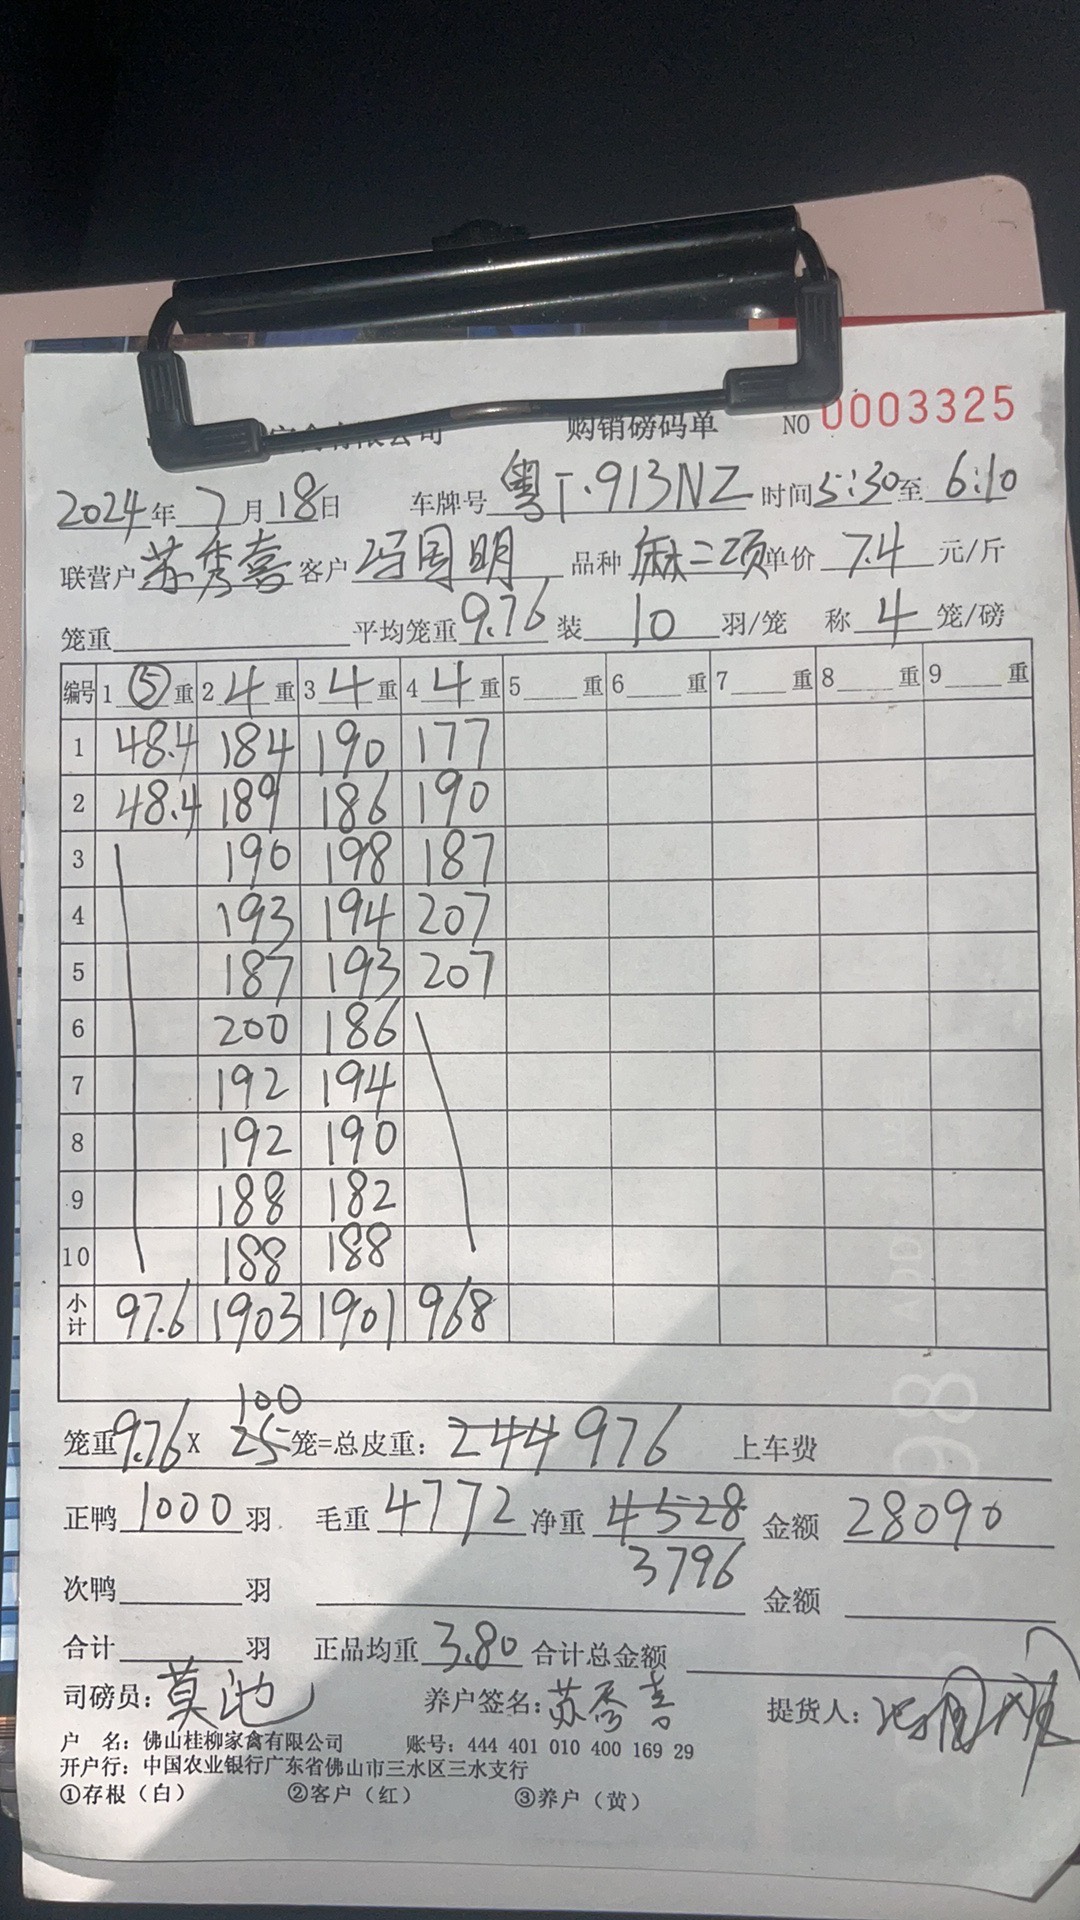 禽有限公司 购销磅码单 NO 0003325
2024年 7月18日 车牌号 粤T·913NZ 时间 5:30至 6:10
联营户 苏秀喜 客户 冯国明 品种 麻二项 单价 7.4 元/斤
笼重 平均笼重 9.76 装 10 羽/笼 称 4 笼/磅
编号 1 ⑤ 重 2 4 重 3 4 重 4 4 重 5 重 6 重 7 重 8 重 9 重
1 48.4 184 190 177
2 48.4 189 186 190
3 190 198 187
4 193 194 207
5 187 193 207
6 200 186
7 192 194
8 192 190
9 188 182
10 188 188
小计 97.6 1903 1901 968
100
笼重 9.76 X 25 笼=总皮重: 244 976 上车费
正鸭 1000 羽 毛重 4772 净重 4528 金额 28090
3796
次鸭 羽 金额
合计 羽 正品均重 3.80 合计总金额
司磅员: 莫池 养户签名: 苏秀喜 提货人:
户 名: 佛山桂柳家禽有限公司 账号: 444 401 010 400 169 29
开户行: 中国农业银行广东省佛山市三水区三水支行
①存根（白） ②客户（红） ③养户（黄）